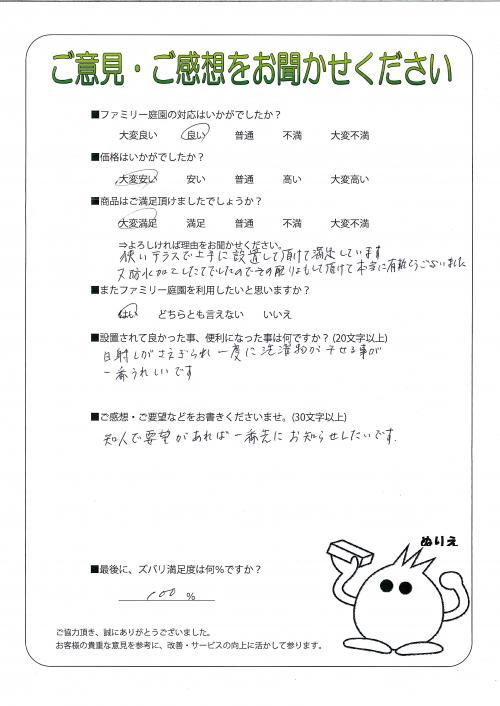 ご意見・ご感想をお聞かせください
■ファミリー庭園の対応はいかがでしたか？
大変良い 良い 普通 不満 大変不満
■価格はいかがでしたか？
大変安い 安い 普通 高い 大変高い
■商品はご満足頂けましたでしょうか？
大変満足 満足 普通 不満 大変不満
⇒よろしければ理由をお聞かせください。
使いテラスで上手に設置して頂けて満足しています
又防水加工したてでしたのでその配りよもして頂けて本当に有難うございました
■またファミリー庭園を利用したいと思いますか？
はい どちらとも言えない いいえ
■設置されて良かった事、便利になった事は何ですか？(20文字以上)
日射しがさえぎられ一度に洗濯物がホせる事が
一番うれしいです
■ご感想・ご要望などをお書きくださいませ。(30文字以上)
知人で要望があれば一番先にお知らせしたいです.
ぬりえ
■最後に、ズバリ満足度は何％ですか？
100 %
ご協力頂き、誠にありがとうございました。
お客様の貴重な意見を参考に、改善・サービスの向上に活かして参ります。